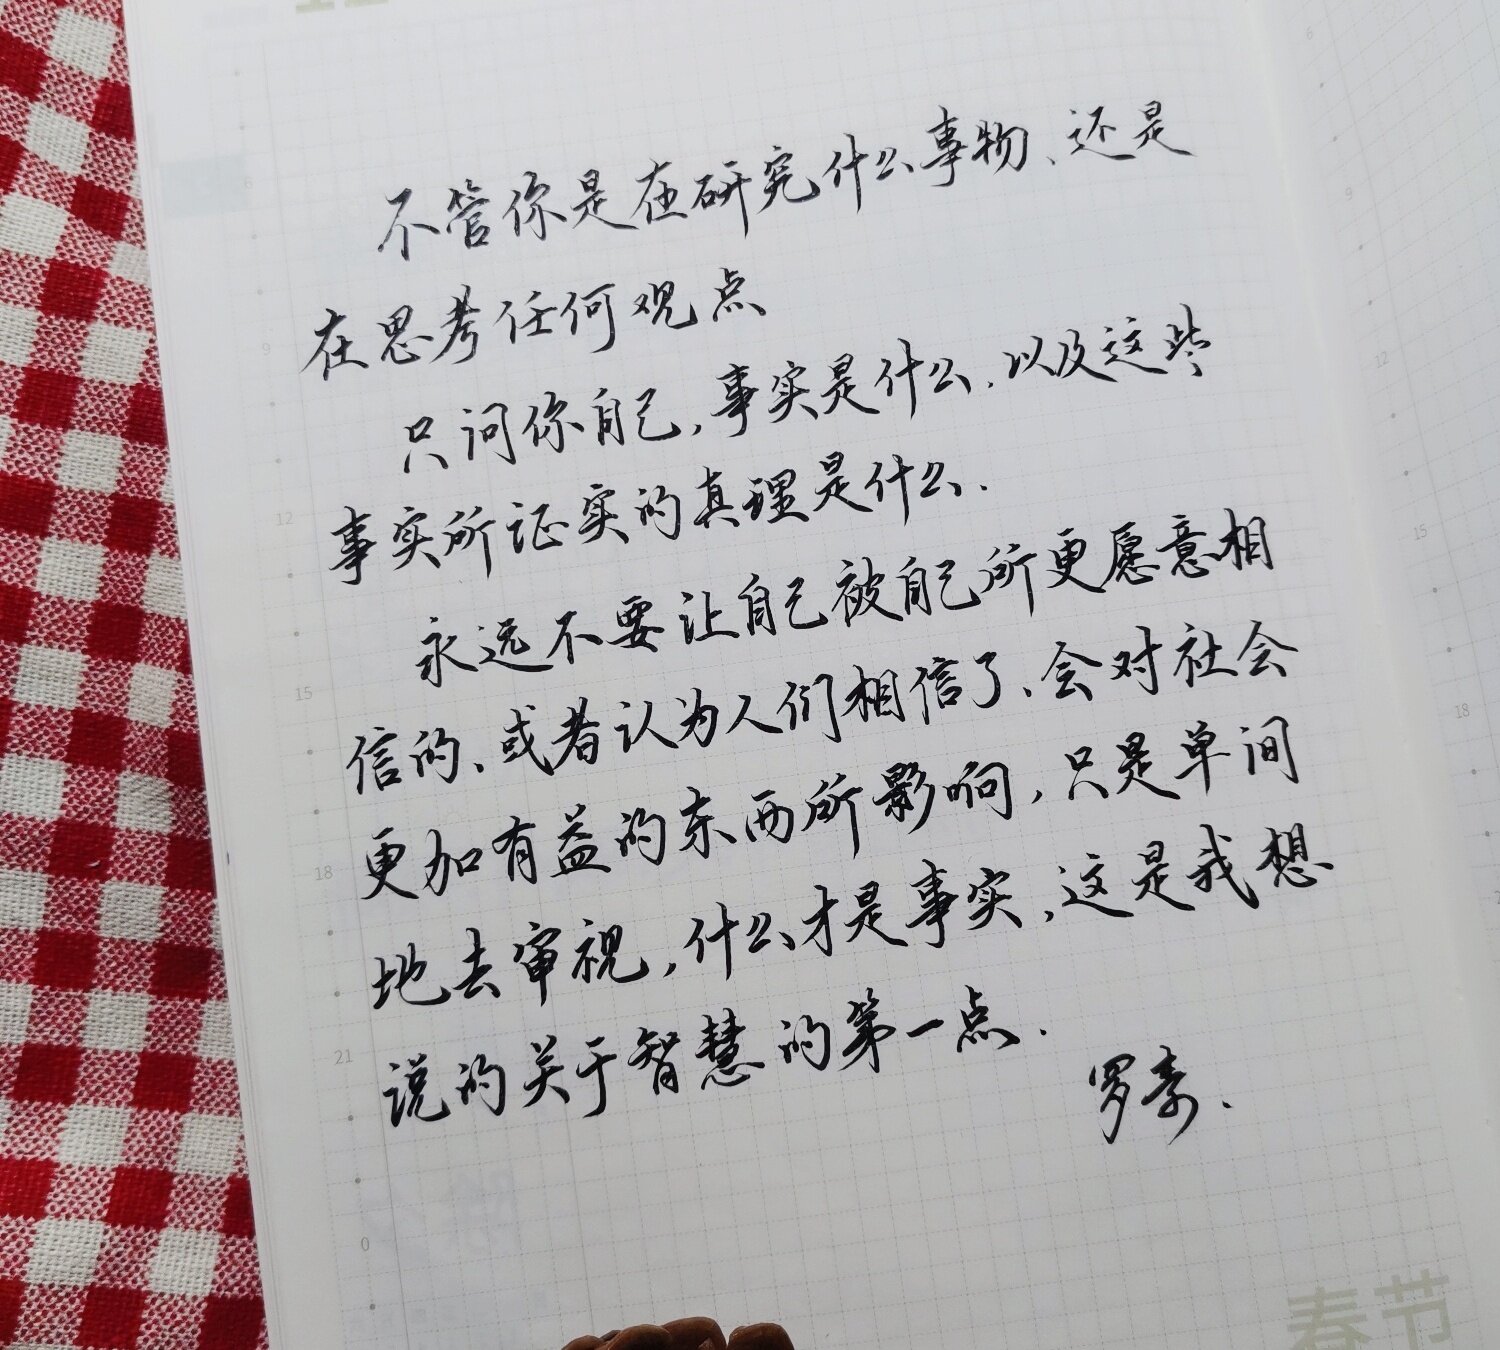 不管你是在研究什么事物、还是
在思考任何观点
只问你自己,事实是什么.以及这些
事实所证实的真理是什么.
永远不要让自己被自己所更愿意相
信的、或者认为人们相信了、会对社会
更加有益的东西所影响,只是单间
地去审视,什么才是事实,这是我想
说的关于智慧的第一点.
罗素.
春节
6
9
12
15
18
21
0
9
12
15
18